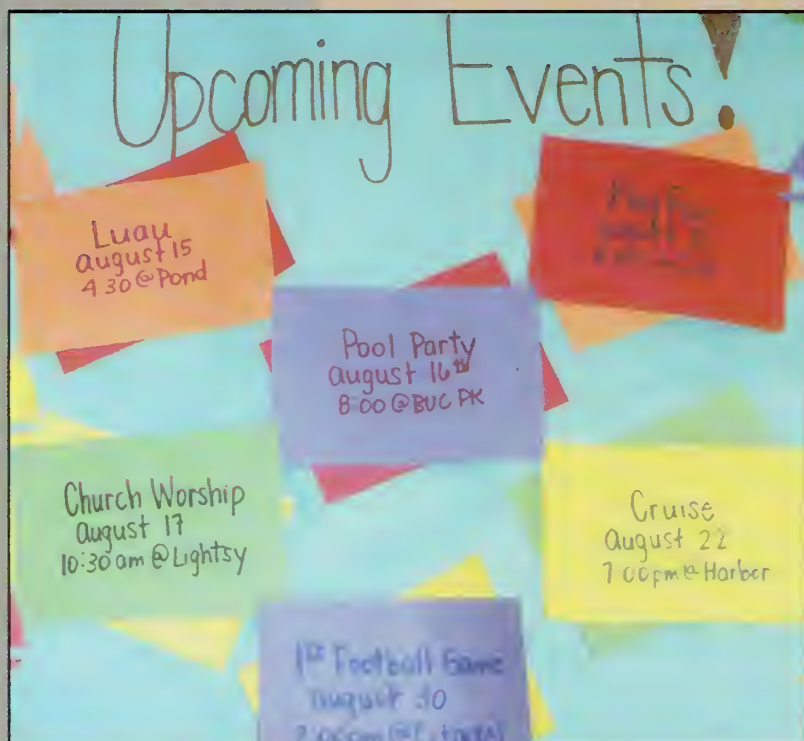 Upcoming Events!
Luau
august 15
4:30 @ Pond
Pool Party
august 16th
8:00 @ BUC PK
Church Worship
august 17
10:30 am @ Lightsy
Cruise
august 22
7:00pm @ Harbor
1st Football Game
august 30